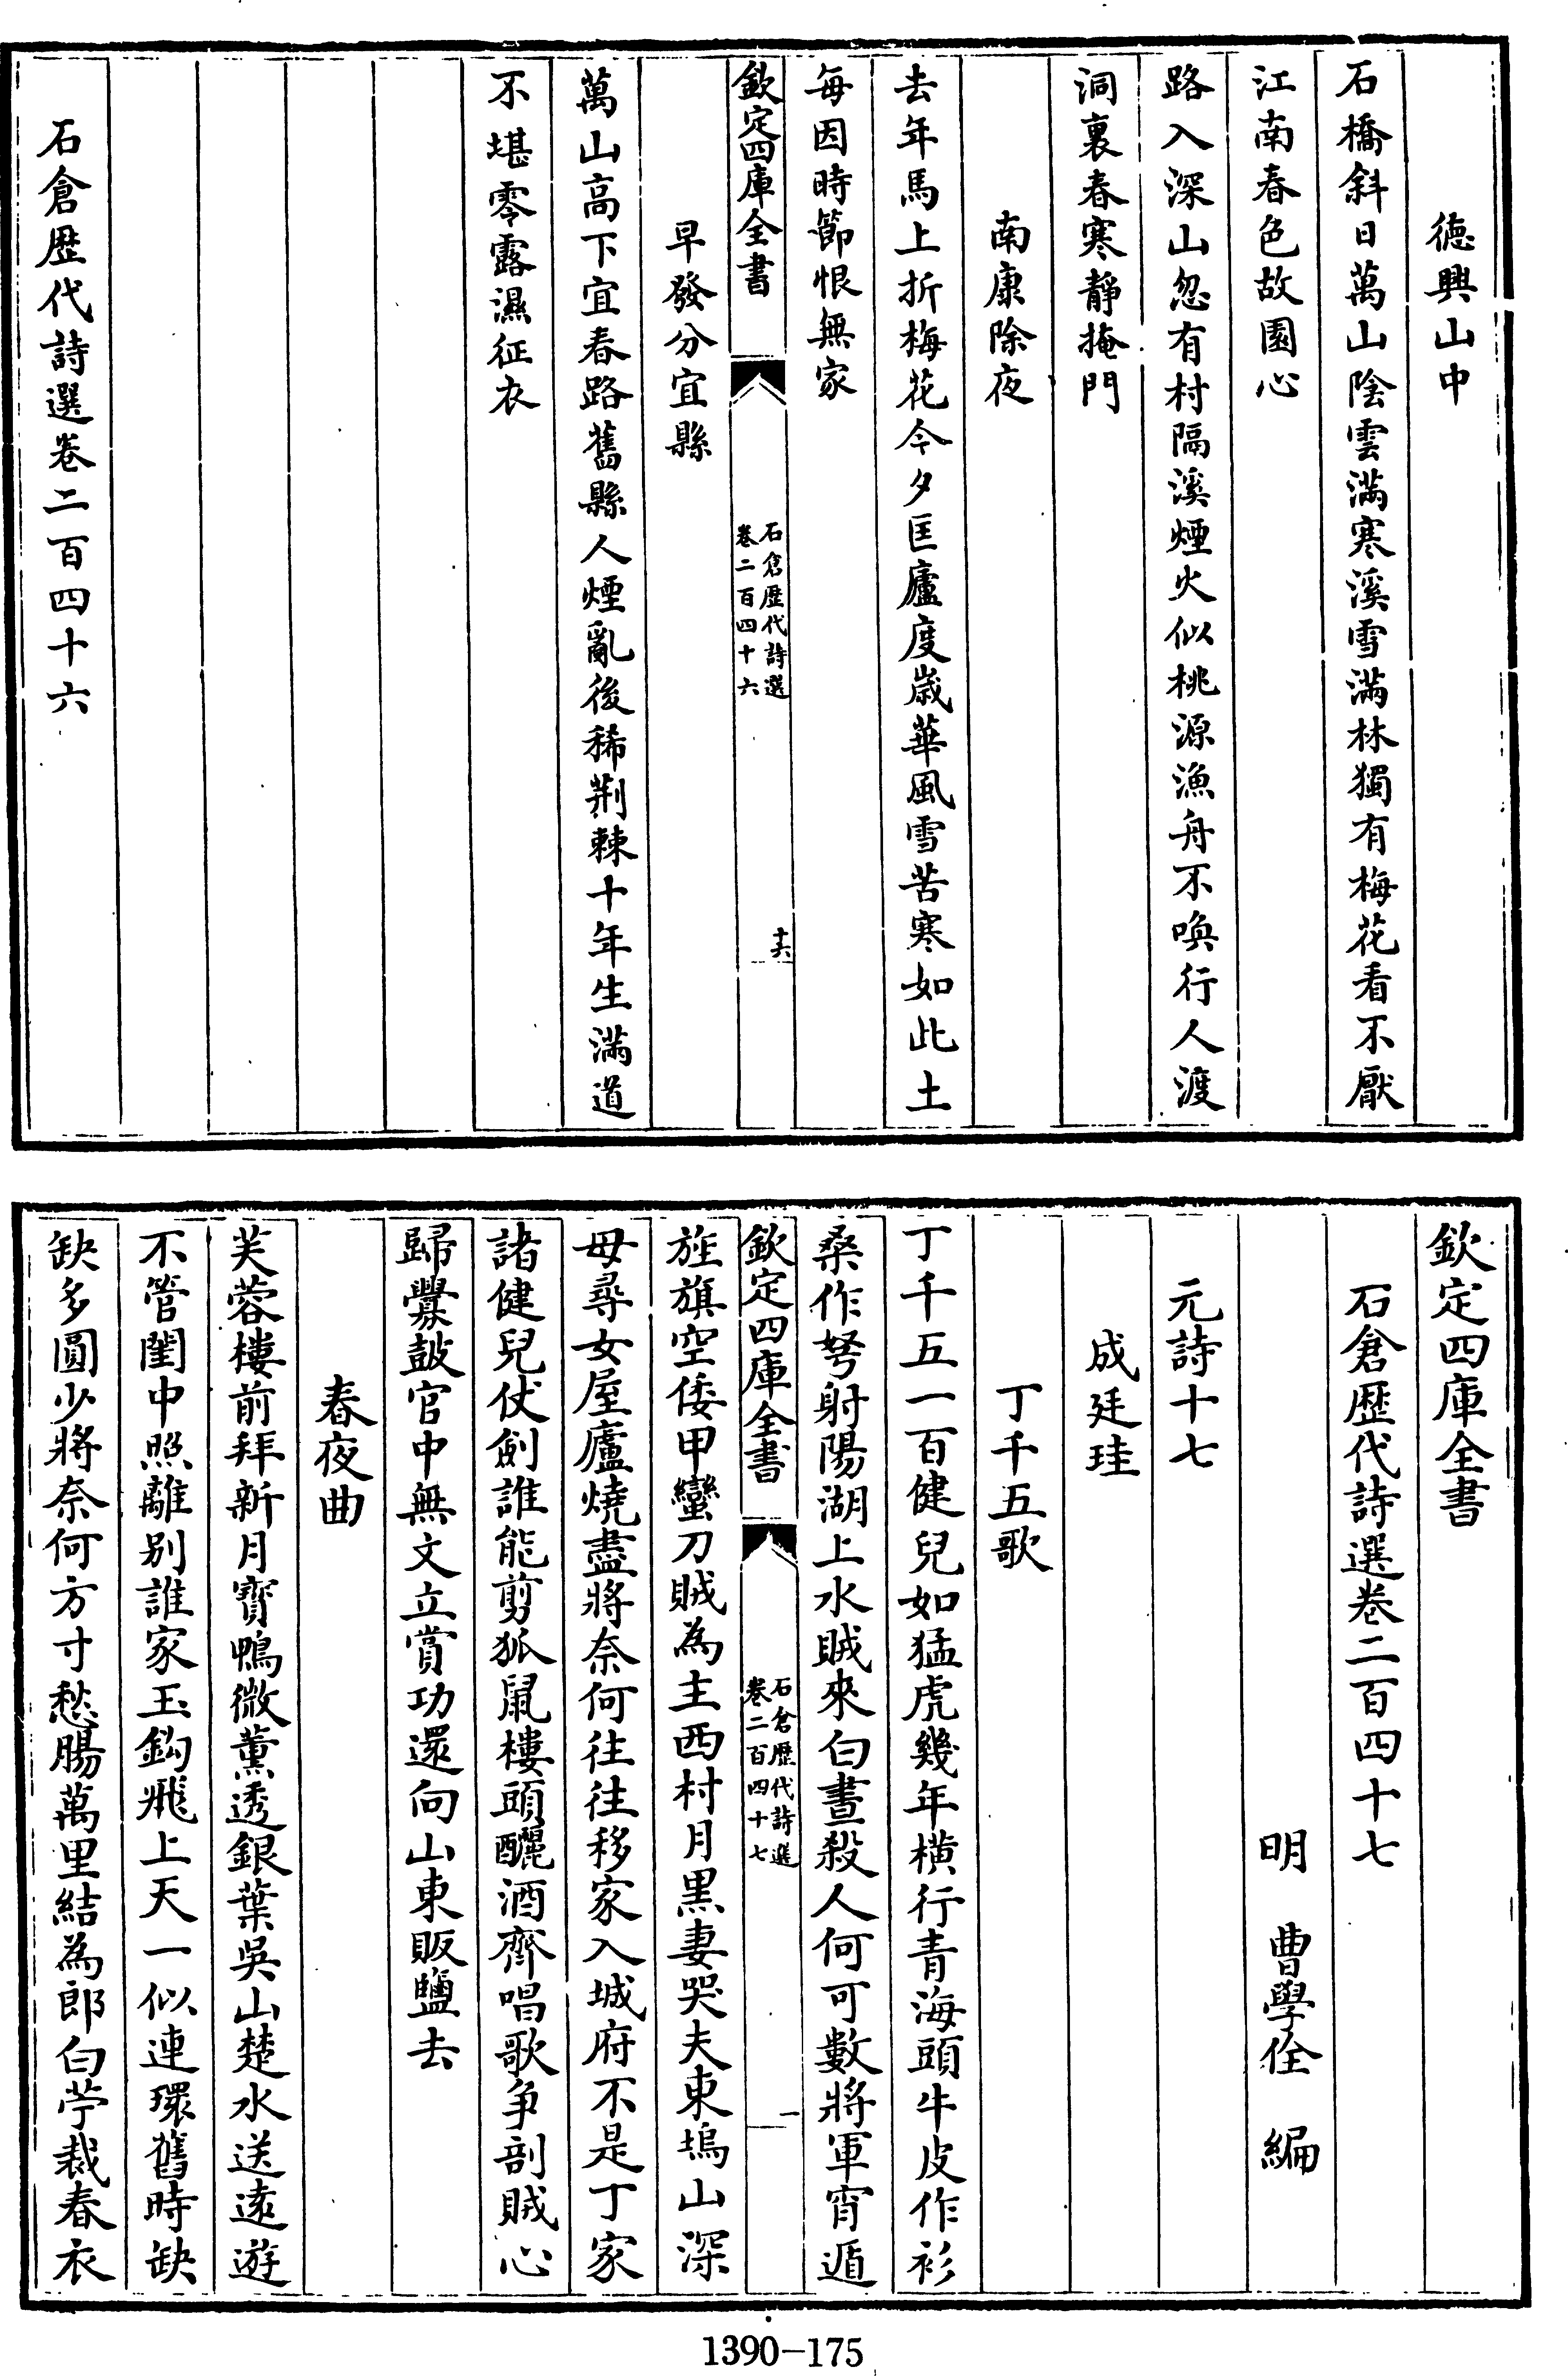 德興山中
石橋斜日萬山陰雲滿寒溪雪滿林獨有梅花看不厭
江南春色故園心
路入深山忽有村隔溪煙火似桃源漁舟不喚行人渡
洞裏春寒靜掩門
南康除夜
去年馬上折梅花今夕匡廬度歲華風雪苦寒如此土
每因時節恨無家
欽定四庫全書
石倉歷代詩選
卷二百四十六
十六
早發分宜縣
萬山高下宜春路舊縣人煙亂後稀荆棘十年生滿道
不堪零露濕征衣
石倉歷代詩選卷二百四十六
欽定四庫全書
石倉歷代詩選卷二百四十七
明 曹學佺 編
元詩十七
成廷珪
丁千五歌
丁千五一百健兒如猛虎幾年橫行青海頭牛皮作衫
桑作弩射陽湖上水賊來白晝殺人何可數將軍宵遁
欽定四庫全書
石倉歷代詩選
卷二百四十七
一
旌旗空倭甲蠻刀賊為主西村月黒妻哭夫東塢山深
母尋女屋廬燒盡將奈何往往移家入城府不是丁家
諸健兒仗劍誰能剪狐鼠樓頭釃酒齊唱歌争剖賊心
歸釁鼓官中無文立賞功還向山東販鹽去
春夜曲
芙蓉樓前拜新月寶鴨微薰透銀葉吳山楚水送遠遊
不管閨中照離别誰家玉鈎飛上天一似連環舊時缺
缺多圓少將奈何方寸愁腸萬里結為郎白苧裁春衣
1390-175